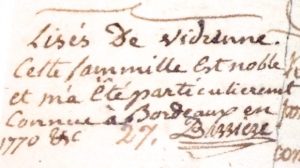 Lisés De vidienne.
Cette fammille Est noble
et m'a Eté particulierement
Connue à Bordeaux en
1770 &c 27. Barriere